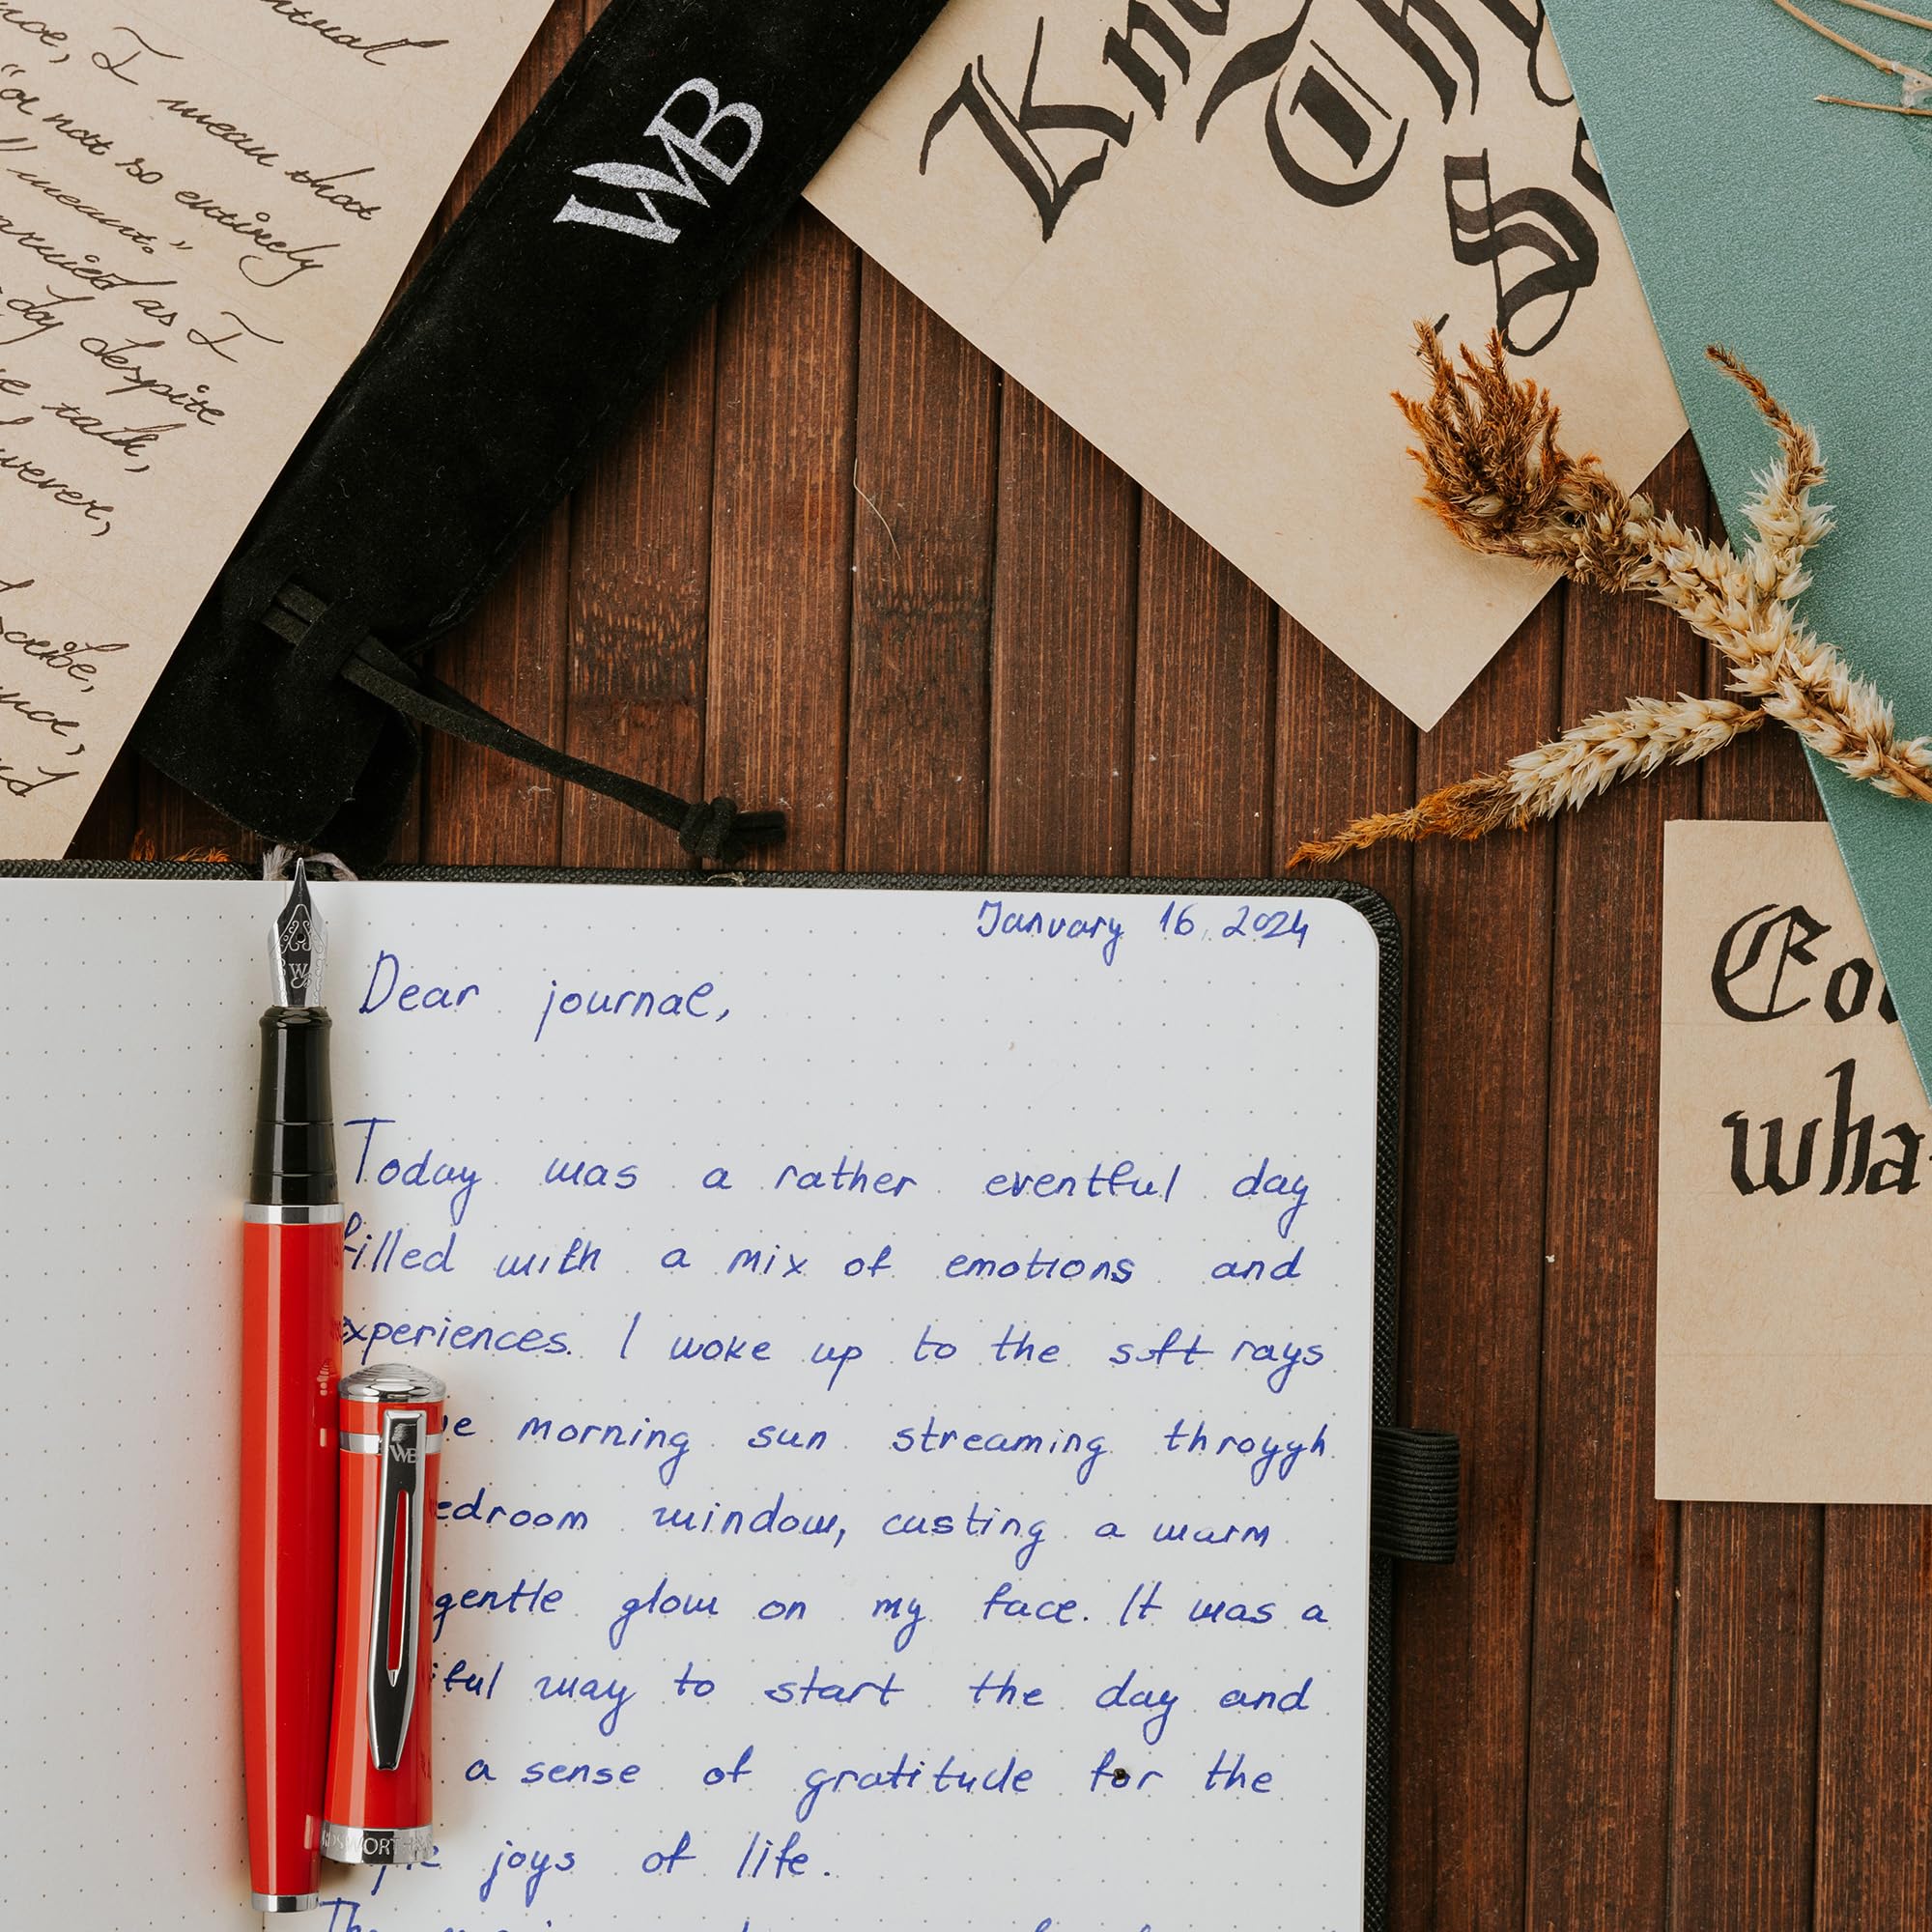 I mean that
"a not so entirely
meant."
as I
day despite
talk,
WB
January 16, 2024
Dear journal,
Today was a rather eventful day
filled with a mix of emotions and
experiences. I woke up to the soft rays
morning sun streaming throygh
edroom window, casting a warm
gentle glow on my face. It was a
iful way to start the day and
a sense of gratitude for the
joys of life.
W
WB
WORTH
Kn
Th
So
Cou
wha